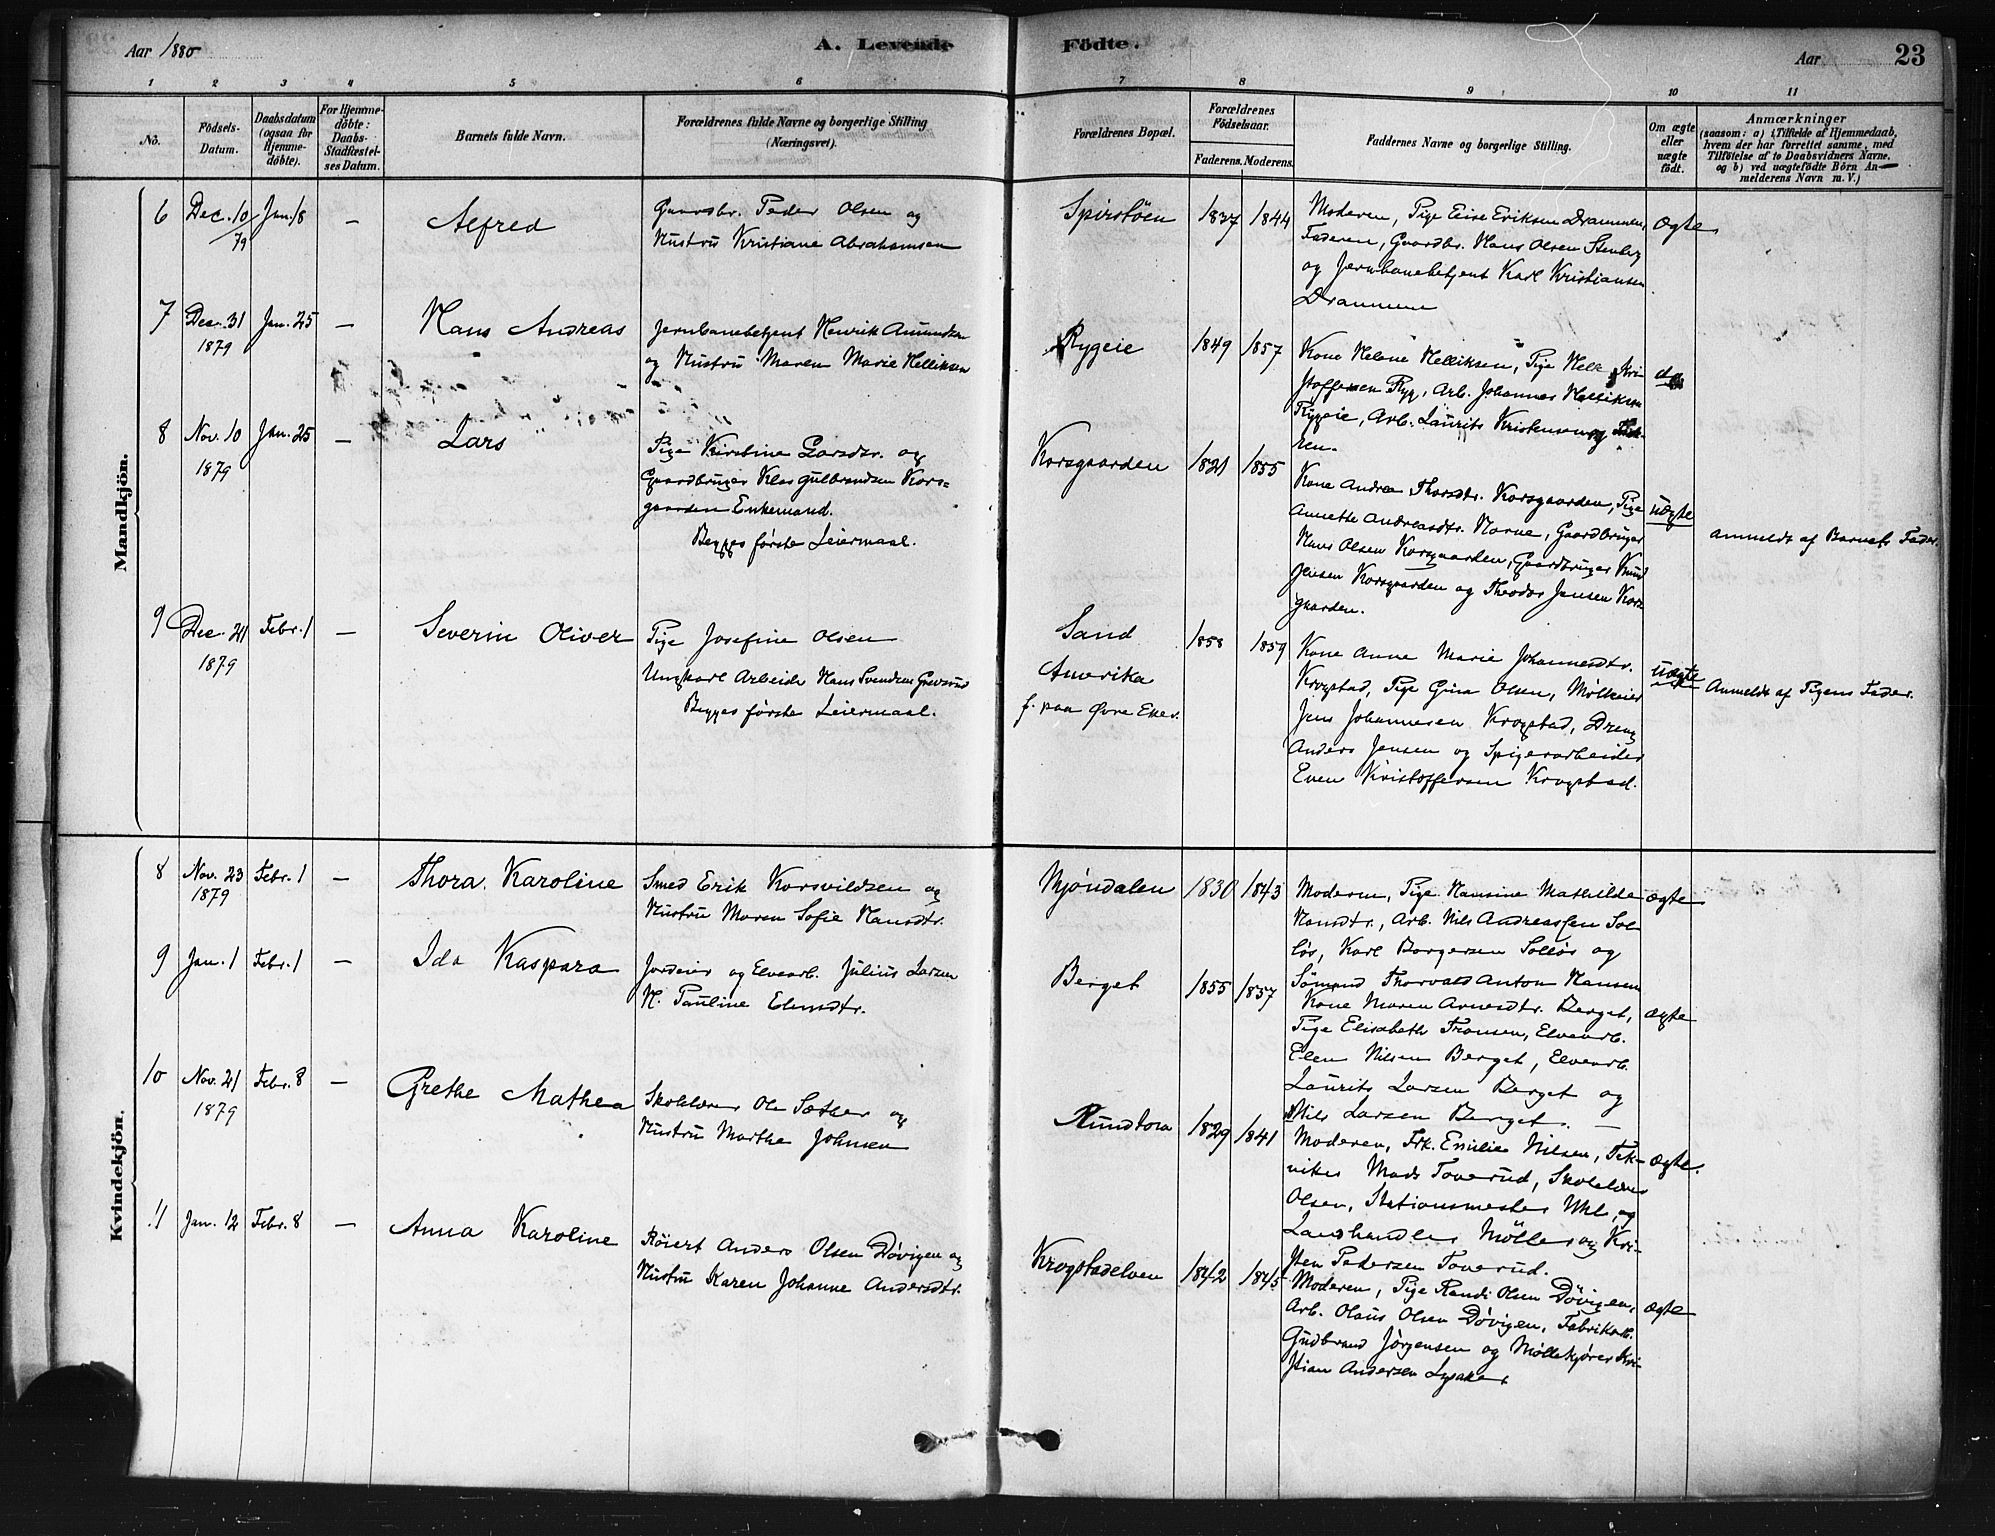 Aar 1880
A. Levende
Födte.
Aar
23
1 2 3 4 5 6 7 8 9 10 11
No.
Födsels-
Datum.
Daabsdatum
(ogsaa for
Hjemme-
döbte).
For Hjemme-
döbte:
Daabs-
Stadfæstel-
ses Datum.
Barnets fulde Navn.
Forældrenes fulde Navne og borgerlige Stilling
(Næringsvei).
Forældrenes Bopæl.
Forældrenes
Födselsaar.
Faderens. Moderens.
Faddernes Navne og borgerlige Stilling.
Om ægte
eller
uægte
födt.
Anmærkninger
(saasom: a) i Tilfælde af Hjemmedaab,
hvem der har forrettet samme, med
Tilföielse af to Daabsvidners Navne,
og b) ved uægtefödte Börn An-
melderens Navn m. V.)
Mandkjön.
6 Dec. 10/79 Jan. 18 — Alfred
Gaardbr. Peder Olsen og
Hustru Kristiane Abrahamsen
Spirstöen 1837 1844
Moderen, Pige Eline Eriksen Drammen,
Faderen, Gaardbr. Hans Olsen Stenberg
og Jernbanebetjent Karl Kristiansen
Drammen
Ægte
7 Dec. 31 1879 Jan. 25 — Hans Andreas
Jernbanebetjent Henrik Amundsen
og Hustru Maren Marie Helliksen
Rygeie 1849 1857
Kone Helene Helliksen, Pige Kri-
stoffersen Ryg, Arb. Johannes Helliksen
Rygeie, Arb. Laurits Kristensen og Fade-
ren.
do
8 Nov. 10 1879 Jan. 25 — Lars
Pige Kirstine Larsdtr. og
Gaardbruger Klas Gulbrandsen Kors-
gaarden Enkemand.
Begges første Leiermaal.
Korsgaarden 1821 1855
Kone Andrea Thorsdtr. Korsgaarden, Pige
Annette Andreasdtr. Horne, Gaardbruger
Hans Olsen Korsgaarden, Gaardbruger Knud
Jensen Korsgaarden og Theodor Jensen Kors-
gaarden.
uægte
anmeldt af Barnets Fader.
9 Dec. 21 1879 Febr. 1 — Severin Oliver
Pige Josefine Olsen
Ungkarl Arbeider Hans Svendsen
Begges første Leiermaal.
Sand
Amerika
f. paa Øvre Eker.
1858 1859
Kone Anne Marie Johannesdtr.
Krogstad, Pige Gina Olsen, Mølleeier
Jens Johannesen Krogstad, Dreng
Anders Jensen og Spigerarbeider
Even Kristoffersen Krogstad.
uægte
Anmeldt af Pigens Fader.
Kvindekjön.
8 Nov. 23 1879 Febr. 1 — Thora Karoline
Smed Erik Korsvildsen og
Hustru Maren Sofie Hansdtr.
Mjøndalen 1830 1843
Moderen, Pige Hansine Mathilde
Hansdtr., Arb. Nils Andreassen Sol-
løs, Karl Borgersen Solløs og
Sømand Thorvald Anton Hansen
ægte
9 Jan. 1 Febr. 1 — Ida Kaspara
Jordeier og Elvearb. Julius Larsen
H. Pauline Elensdtr.
Berget 1855 1857
Kone Maren Arnesdtr. Berget,
Pige Elisabeth Fransen, Elvearb.
Elen Nilsen Berget, Elvearb.
Laurits Larsen Berget og
Nils Larsen Berget. —
ægte
10 Nov. 21 1879 Febr. 8 — Grethe Mathea
Skolelærer Ole Sæther og
Hustru Marthe Johnsen
Rundtom 1829 1841
Moderen, Frk. Emilie Nilsen,
Mads Toverud, Skolelærer
Olsen, Stationsmester Uhl, og
Landhandler Møller og Kri-
sten Pedersen Toverud.
ægte.
11 Jan. 12 Febr. 8 — Anna Karoline
Röiert Anders Olsen Døvigen og
Hustru Karen Johanne Andersdtr.
Krogstadelven 1842 1845
Moderen, Pige Randi Olsen Dövigen,
Arb. Olaus Olsen Døvigen, Fabrikarb.
Gudbrand Jørgensen og Møllekjører Kri-
stian Andersen Lysaker
ægte